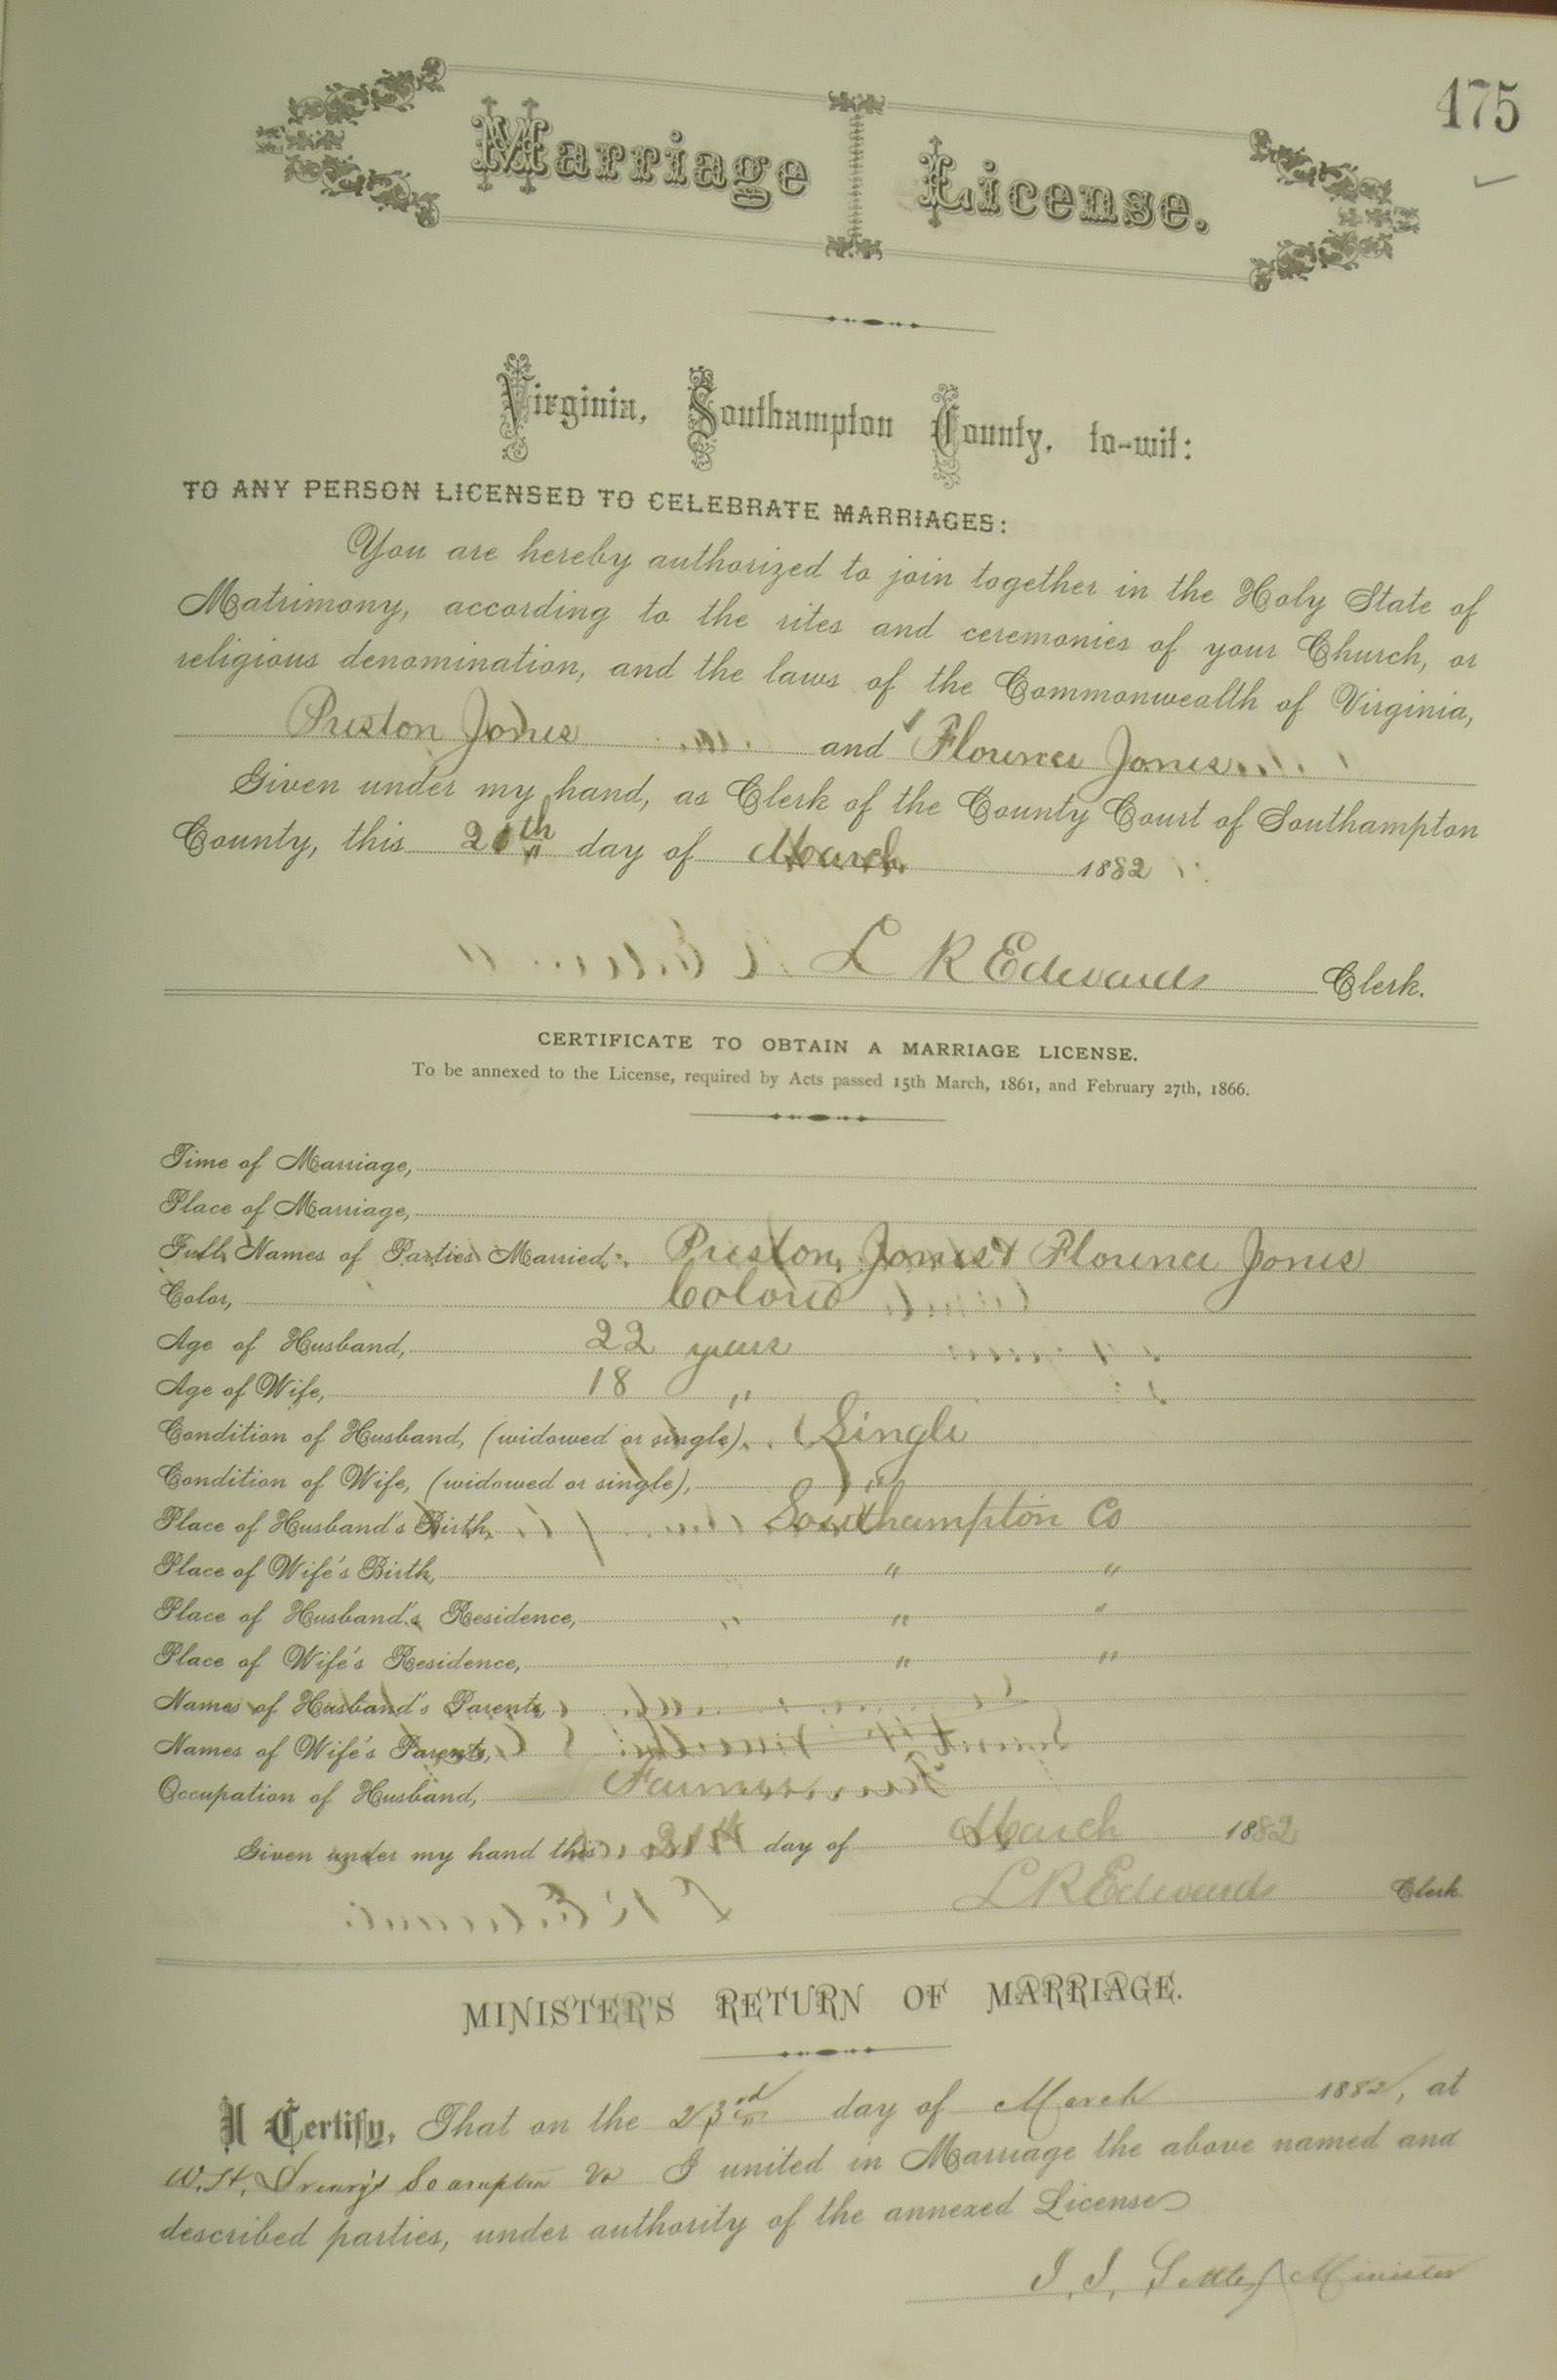 175
Marriage License.
Virginia, Southampton County, to-wit:
TO ANY PERSON LICENSED TO CELEBRATE MARRIAGES:
You are hereby authorized to join together in the Holy State of
Matrimony, according to the rites and ceremonies of your Church, or
religious denomination, and the laws of the Commonwealth of Virginia,
Preston Jones and Florence Jones
Given under my hand, as Clerk of the County Court of Southampton
County, this day of March 1882
L R Edwards Clerk.
CERTIFICATE TO OBTAIN A MARRIAGE LICENSE.
To be annexed to the License, required by Acts passed 15th March, 1861, and February 27th, 1866.
Time of Marriage,
Place of Marriage,
Full Names of Parties Married, Preston Jones & Florence Jones
Color, Colored
Age of Husband, 22 years
Age of Wife, 18 "
Condition of Husband, (widowed or single), Single
Condition of Wife, (widowed or single), "
Place of Husband's Birth, Southampton Co
Place of Wife's Birth, " "
Place of Husband's Residence, " "
Place of Wife's Residence, " "
Names of Husband's Parents,
Names of Wife's Parents,
Occupation of Husband, Farmer
Given under my hand this day of March 1882
L R Edwards Clerk.
MINISTER'S RETURN OF MARRIAGE.
I Certify, That on the 23rd day of March 1882, at
W. H. Va I united in Marriage the above named and
described parties, under authority of the annexed License
Minister